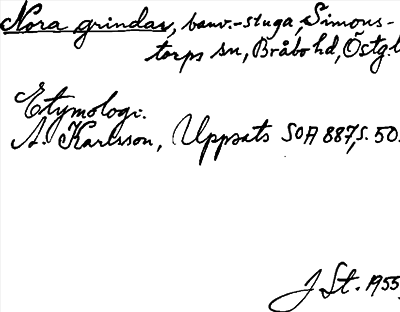 Norra grindar, banv.-stuga, Simons-
torps sn, Bråbo hd, Östg.l
Etymologi.
A. Karlsson, Uppsats SOA 887, s. 50.
J St. 1955.